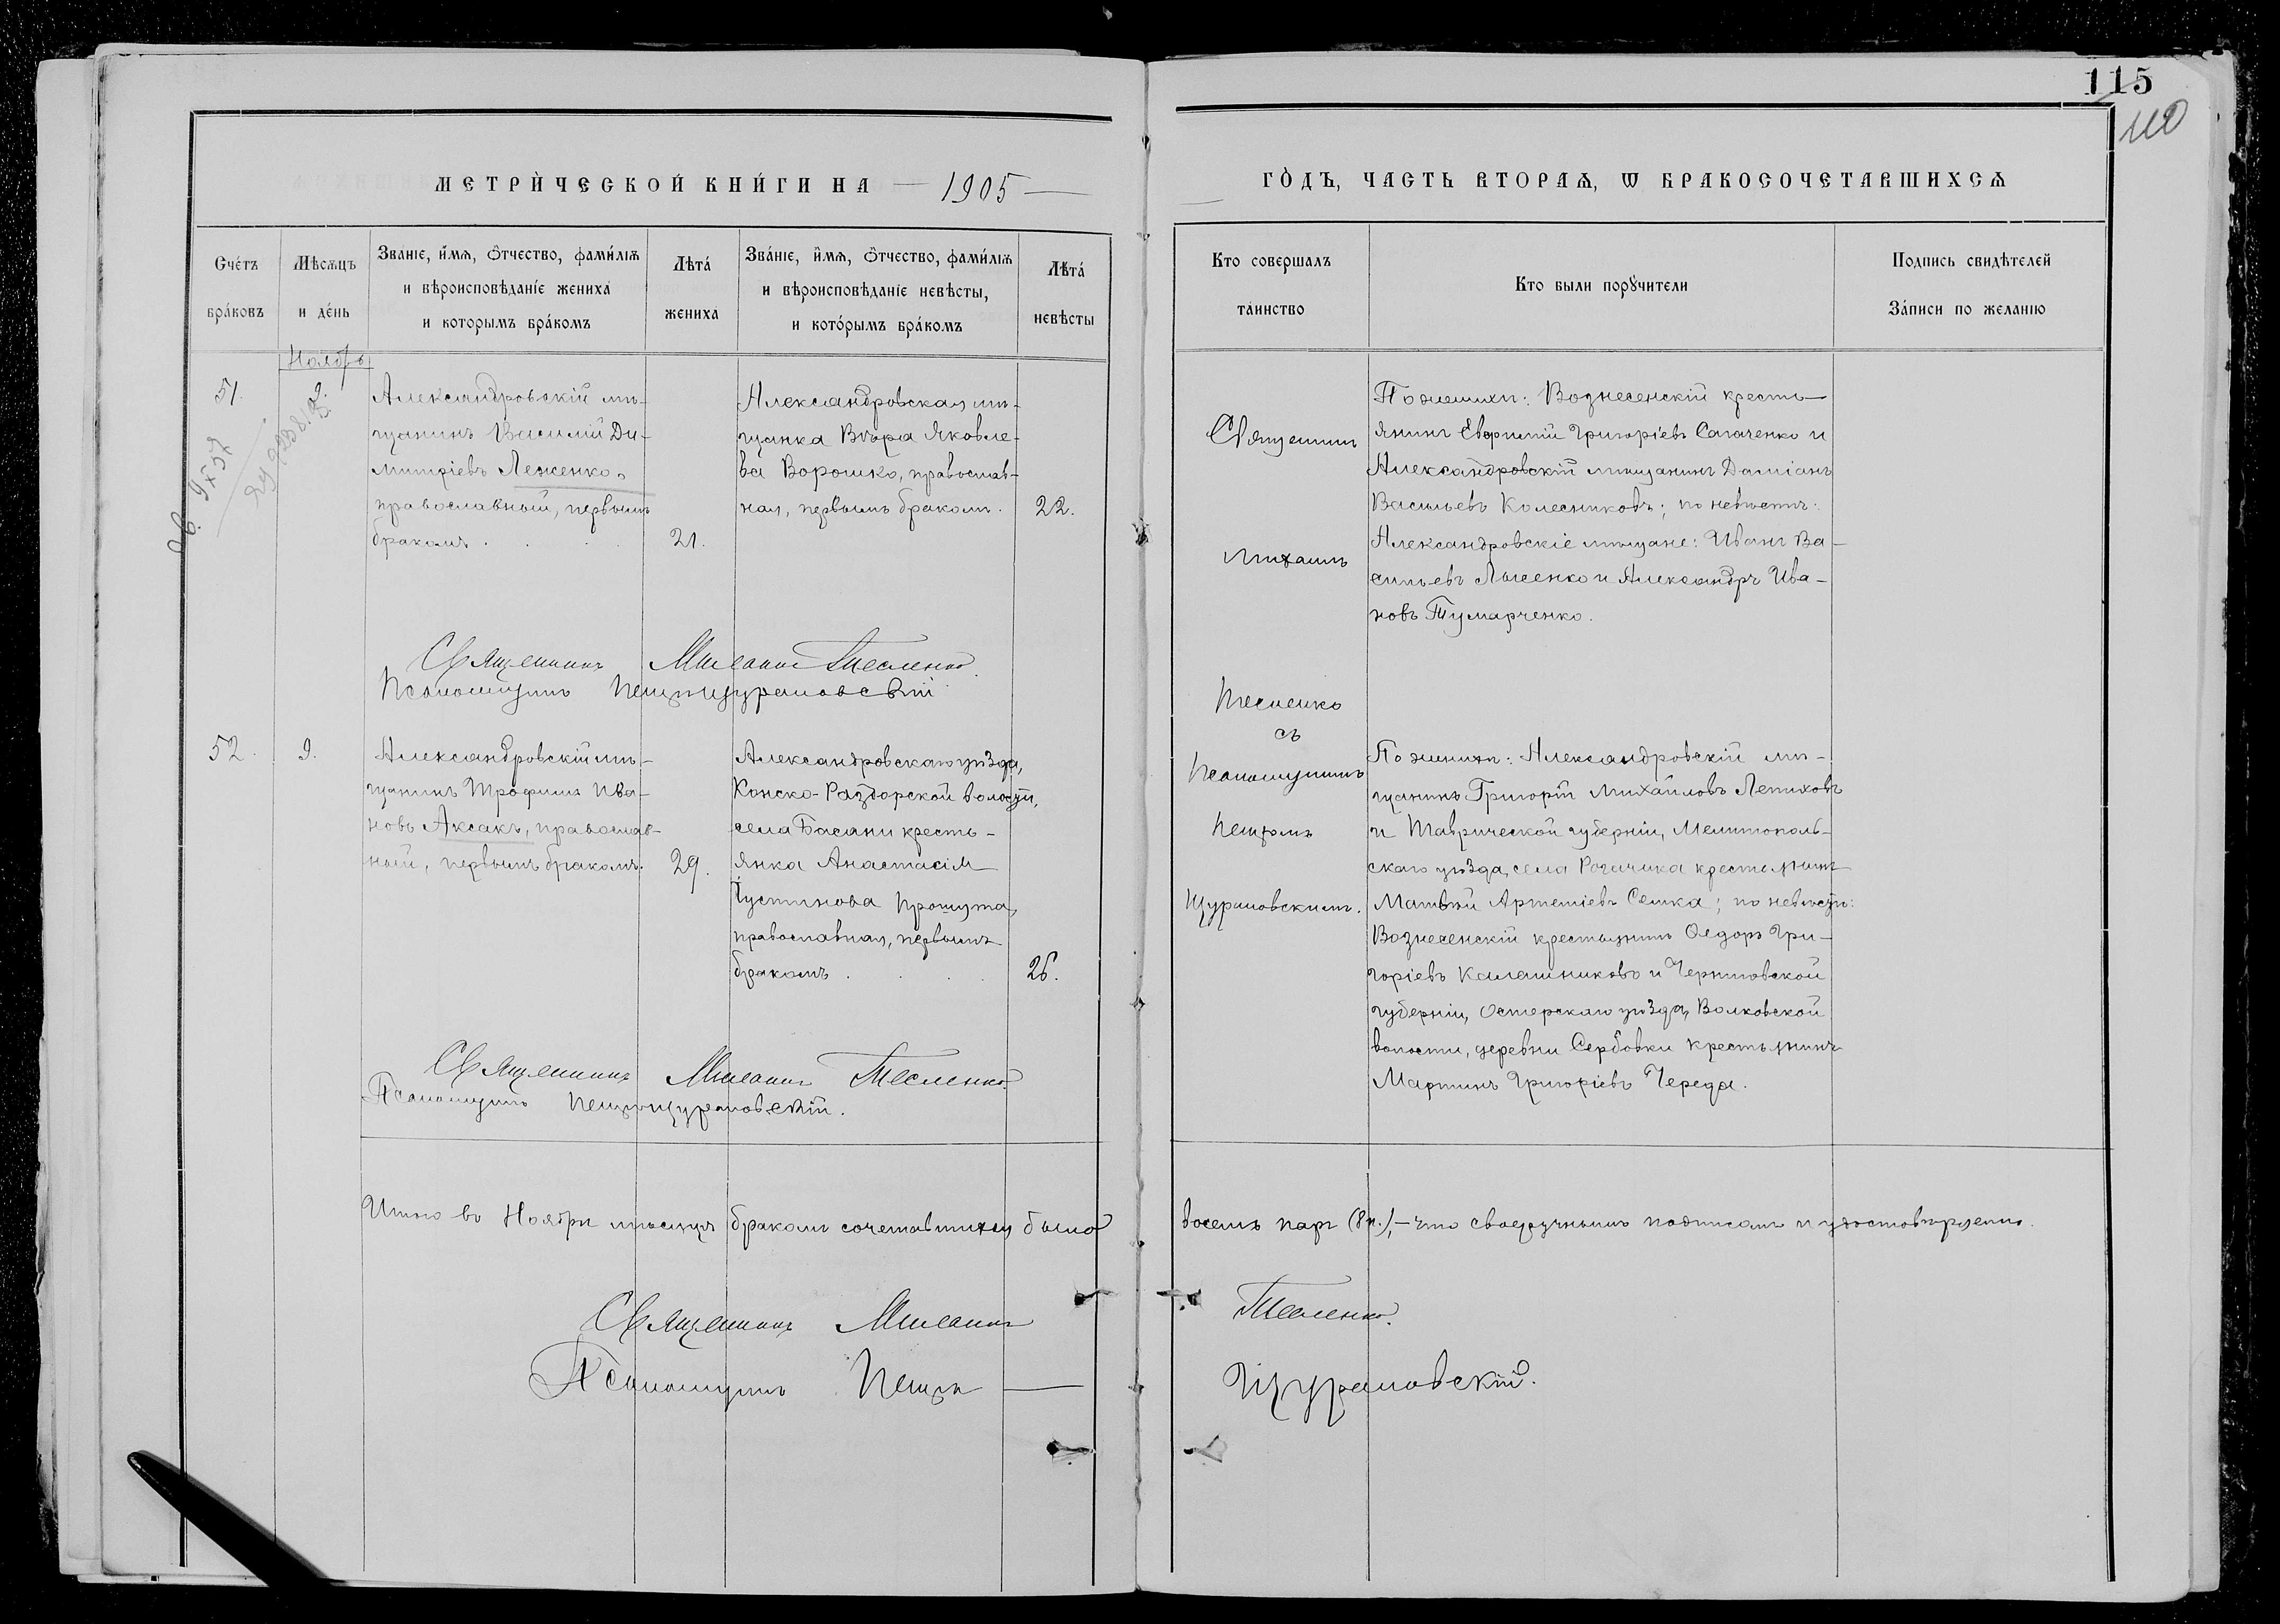 115
110
МЕТРИ́ЧЕСКОЙ КНИ́ГИ НА — 1905 —
ГО́ДЪ, ЧАСТЬ ВТОРАѦ, Ѡ БРАКОСОЧЕТАВШИХСѦ
Сче́тъ
бра́ковъ
Мѣсѧцъ
и де́нь
Званіе, и́мѧ, о́тчество, фами́ліѧ
и вѣроисповѣданіе жениха́
и которымъ бра́комъ
Лѣта́
жениха
Зва́ніе, и́мѧ, о́тчество, фами́ліѧ
и вѣроисповѣданіе невѣ́сты,
и кото́рымъ бра́комъ
Лѣта́
невѣсты
Кто совершалъ
таинство
Кто были порꙋчители
Подпись свидѣтелей
За́писи по желанію
Ноябрь
51.
9.
Александровскій мѣ-
щанинъ Василій Ди-
митріевъ Леженко,
православный, первымъ
бракомъ . . . .
21.
Александровская мѣ-
щанка Вѣра Яковле-
ва Ворошко, православ-
ная, первымъ бракомъ.
22.
Священникъ
Михаилъ
Тесленко
съ
Псаломщикомъ
Петромъ
Щурановскимъ.
По женихѣ: Вознесенскій кресть-
янинъ Евфимій Григоріевъ Сагаченко и
Александровскій мѣщанинъ Даміанъ
Васильевъ Колесниковъ; по невѣстѣ:
Александровскіе мѣщане: Иванъ Ва-
сильевъ Лысенко и Александръ Ива-
новъ Тумарченко.
Священникъ Михаилъ Тесленко.
Псаломщикъ Петръ Щурановскій.
52.
9.
Александровскій мѣ-
щанинъ Трофимъ Ива-
новъ Аксакъ, православ-
ный, первымъ бракомъ.
29.
Александровскаго уѣзда,
Конско-Раздорской волости,
села Басани кресть-
янка Анастасія
Іустинова
православная, первымъ
бракомъ . . . .
26.
По женихѣ: Александровскій мѣ-
щанинъ Григорій Михайловъ Лепиховъ
и Таврической губерніи, Мелитополь-
скаго уѣзда, села Рогачика крестьянинъ
Матвѣй Артеміевъ Семка; по невѣстѣ:
Вознесенскій крестьянинъ Ѳедоръ Гри-
горіевъ Калашниковъ и Черниговской
губерніи, Остерскаго уѣзда, Волковской
волости, деревни Сербовки крестьянинъ
Мартинъ Григоріевъ Череда.
Священникъ Михаилъ Тесленко.
Псаломщикъ Петръ Щурановскій.
Итого въ Ноябрѣ мѣсяцѣ бракомъ сочетавшихся было восемь паръ (8 п.), – что своеручнымъ подписомъ и удостовѣряемъ.
Священникъ Михаилъ Тесленко.
Псаломщикъ Петръ — Щурановскій.